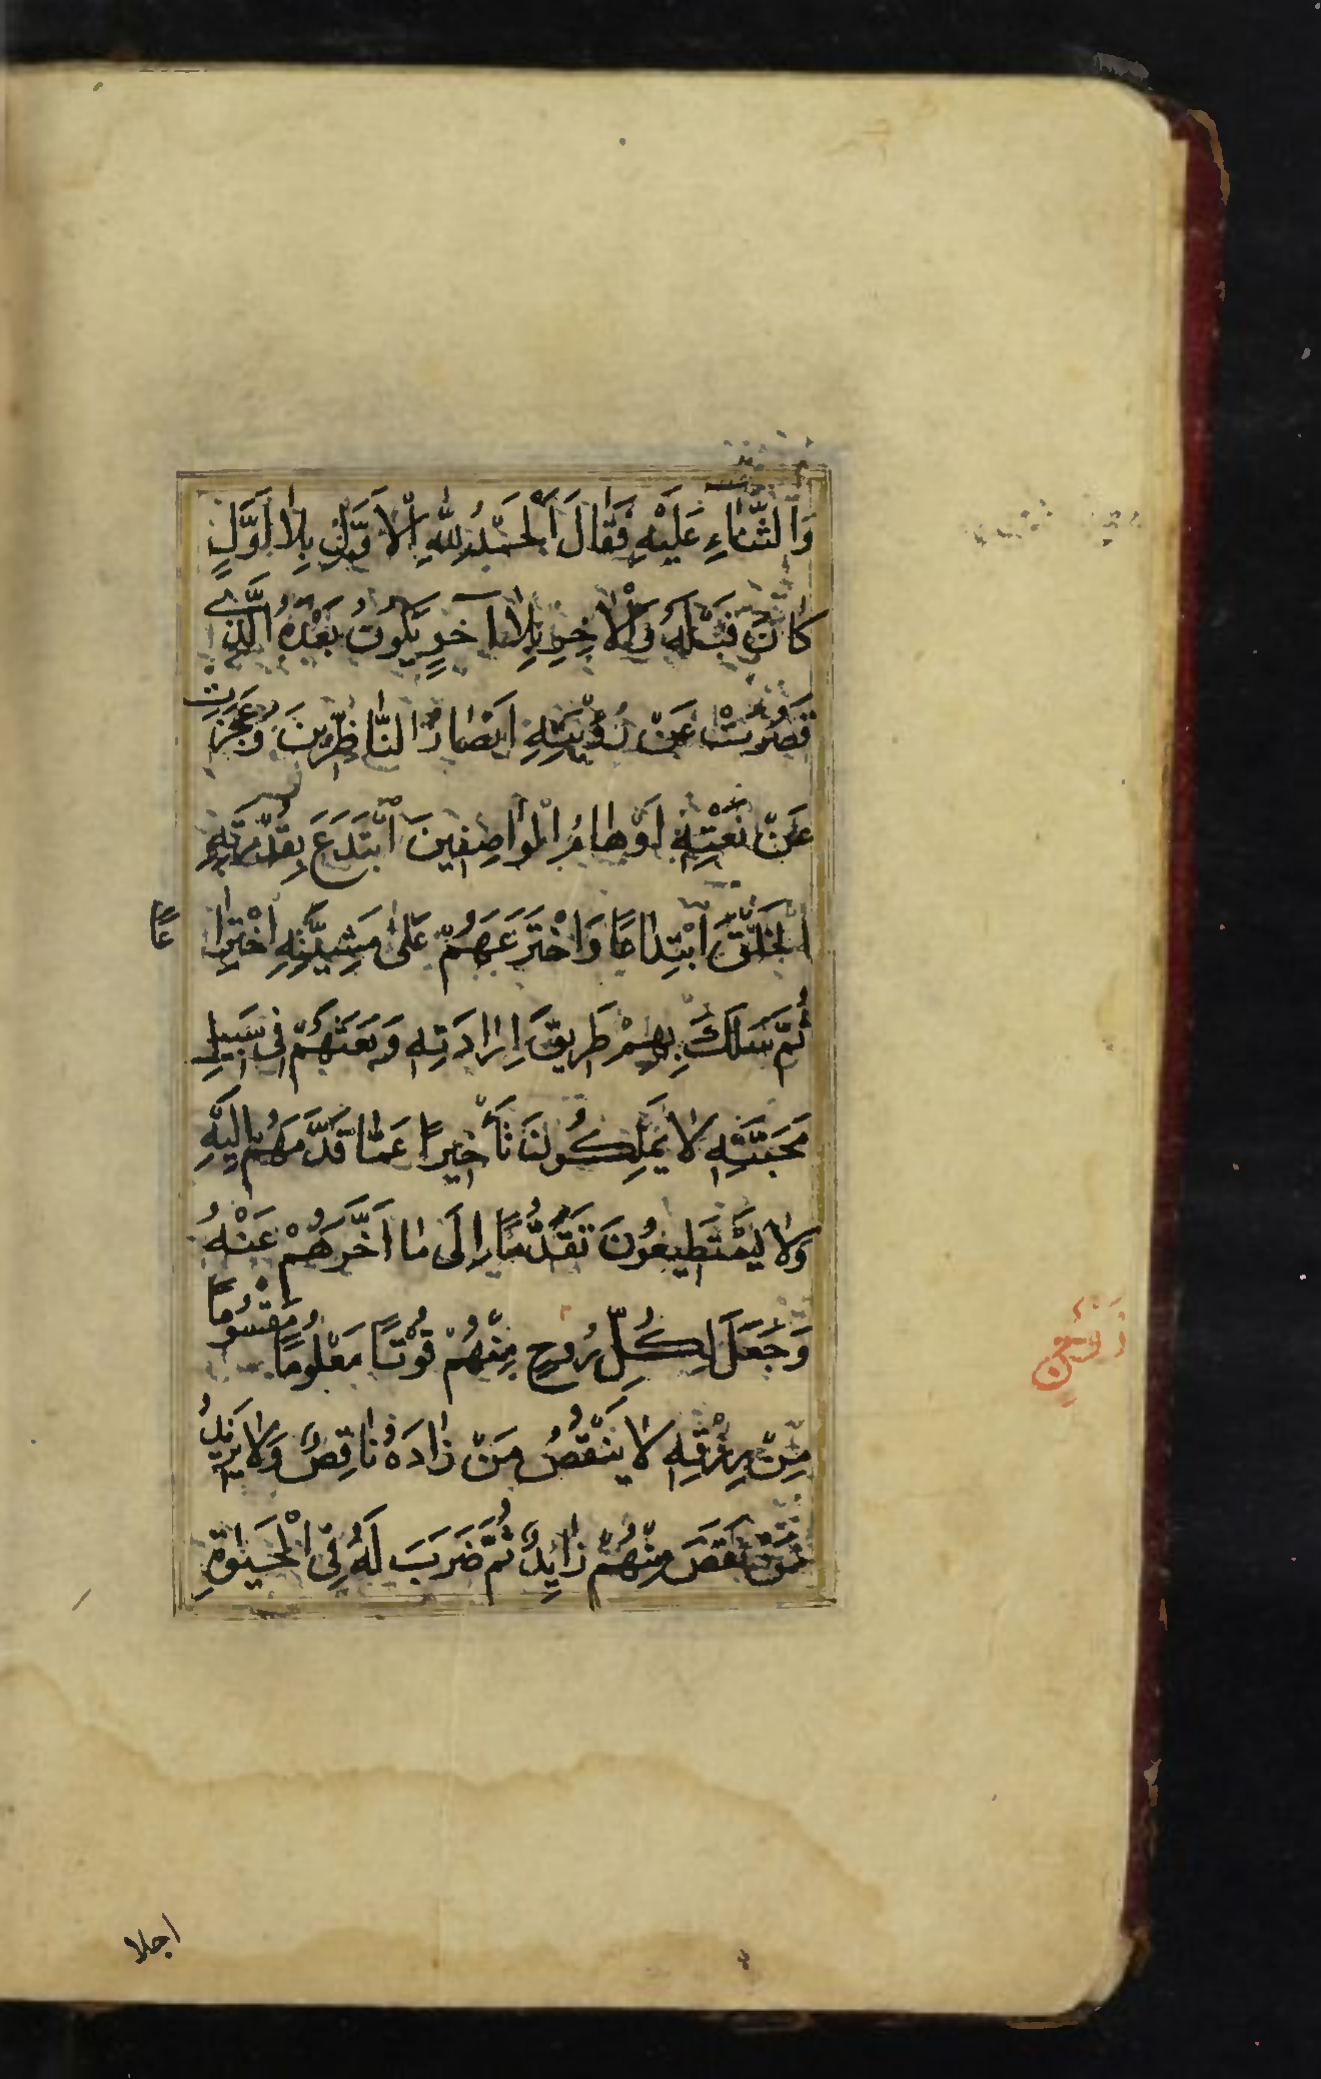 وَالثَّنَاءِ عَلَيْهِ فَقَالَ اَلْحَمْدُ لِلّٰهِ الْاَوَّلِ بِلَا اَوَّلٍ
كَانَ قَبْلَهُ وَالْاٰخِرِ بِلَا اٰخِرٍ يَكُونُ بَعْدَهُ الَّذِي
قَصُرَتْ عَنْ رُؤْيَتِهِ اَبْصَارُ النَّاظِرِينَ وَعَجَزَتْ
عَنْ نَعْتِهِ اَوْهَامُ الْوَاصِفِينَ ابْتَدَعَ بِقُدْرَتِهِ
الْخَلْقَ ابْتِدَاعًا وَاخْتَرَعَهُمْ عَلَى مَشِيَّتِهِ اخْتِرَاعًا
ثُمَّ سَلَكَ بِهِمْ طَرِيقَ اِرَادَتِهِ وَبَعَثَهُمْ فِي سَبِيلِ
مَحَبَّتِهِ لَا يَمْلِكُونَ تَأْخِيرًا عَمَّا قَدَّمَهُمْ اِلَيْهِ
وَلَا يَسْتَطِيعُونَ تَقَدُّمًا اِلَى مَا اَخَّرَهُمْ عَنْهُ
وَجَعَلَ لِكُلِّ رُوحٍ مِنْهُمْ قُوتًا مَعْلُومًا مَقْسُومًا
مِنْ رِزْقِهِ لَا يَنْقُصُ مَنْ زَادَهُ نَاقِصٌ وَلَا يَزِيدُ
مَنْ نَقَصَ مِنْهُمْ زَايِدٌ ثُمَّ ضَرَبَ لَهُ فِي الْحَيٰوةِ
زَوْجٍ
اجلا